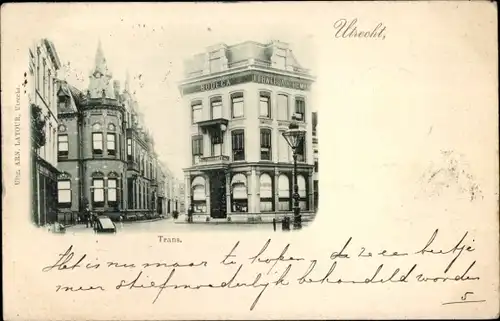 Utrecht,
BODECA
Uitg. ARN. LATOUR, Utrecht.
Trans.
Het is nu maar te hopen, da ze een beetje
meer stiefmoederlijk behandeld worden
5